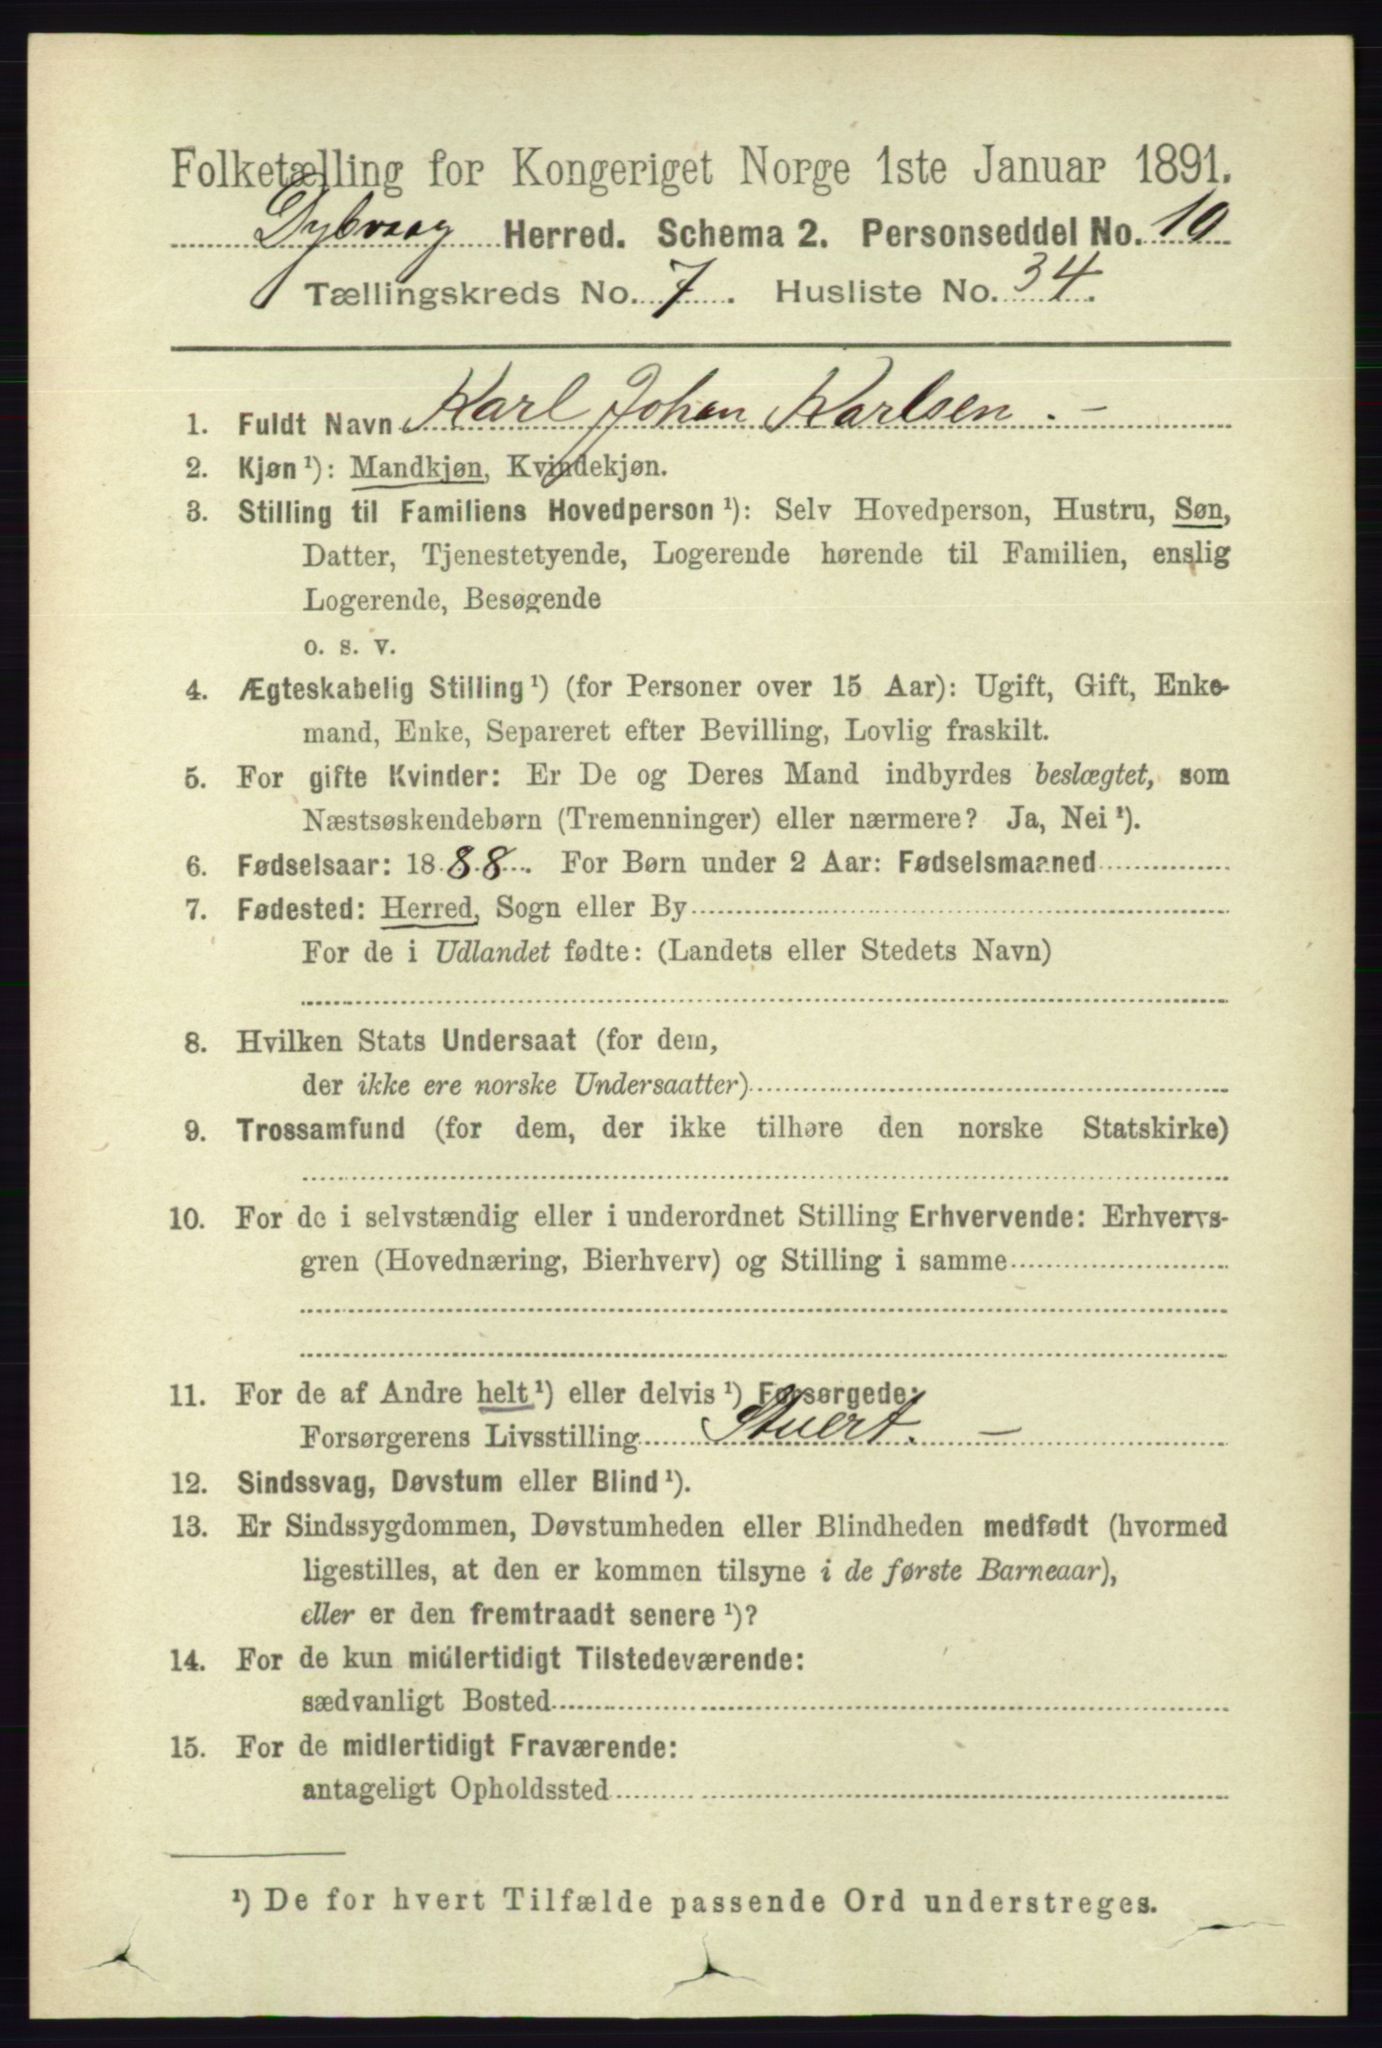 Folketælling for Kongeriget Norge 1ste Januar 1891.
Dybvaag Herred. Schema 2. Personseddel No. 10
Tællingskreds No. 7. Husliste No. 34.
1. Fuldt Navn Karl Johan Karlsen. –
2. Kjøn ¹): Mandkjøn, Kvindekjøn.
3. Stilling til Familiens Hovedperson ¹): Selv Hovedperson, Hustru, Søn,
Datter, Tjenestetyende, Logerende hørende til Familien, enslig
Logerende, Besøgende
o. s. v.
4. Ægteskabelig Stilling ¹) (for Personer over 15 Aar): Ugift, Gift, Enke-
mand, Enke, Separeret efter Bevilling, Lovlig fraskilt.
5. For gifte Kvinder: Er De og Deres Mand indbyrdes beslægtet, som
Næstsøskendebørn (Tremenninger) eller nærmere? Ja, Nei ¹).
6. Fødselsaar: 1888. For Børn under 2 Aar: Fødselsmaaned
7. Fødested: Herred, Sogn eller By
For de i Udlandet fødte: (Landets eller Stedets Navn)
8. Hvilken Stats Undersaat (for dem,
der ikke ere norske Undersaatter)
9. Trossamfund (for dem, der ikke tilhøre den norske Statskirke)
10. For de i selvstændig eller i underordnet Stilling Erhvervende: Erhvervs-
gren (Hovednæring, Bierhverv) og Stilling i samme
11. For de af Andre helt ¹) eller delvis ¹) Forsørgede:
Forsørgerens Livsstilling Stuert. –
12. Sindssvag, Døvstum eller Blind ¹).
13. Er Sindssygdommen, Døvstumheden eller Blindheden medfødt (hvormed
ligestilles, at den er kommen tilsyne i de første Barneaar),
eller er den fremtraadt senere ¹)?
14. For de kun midlertidigt Tilstedeværende:
sædvanligt Bosted
15. For de midlertidigt Fraværende:
antageligt Opholdssted
¹) De for hvert Tilfælde passende Ord understreges.